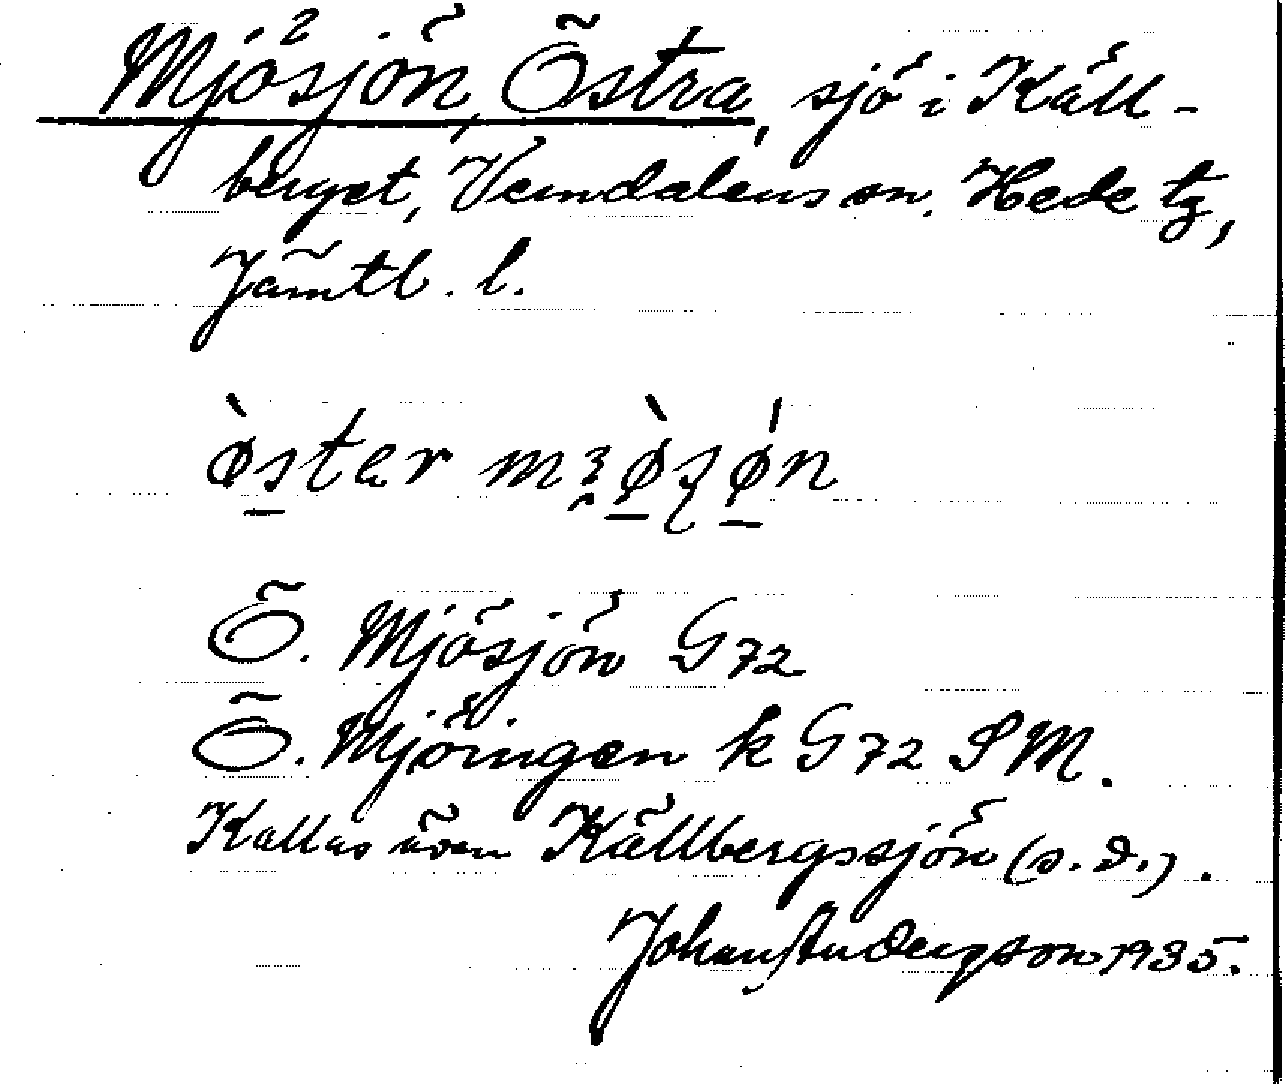 Mjösjön, Östra, sjö i Käll-
berget, Vemdalens sn. Hede tg,
Jämtl. l.
Ö. Mjösjön G 72
Ö. Mjöingen k G 72 S M.
Kallas även Källbergssjön (s. d.).
Johan Anderson 1935.